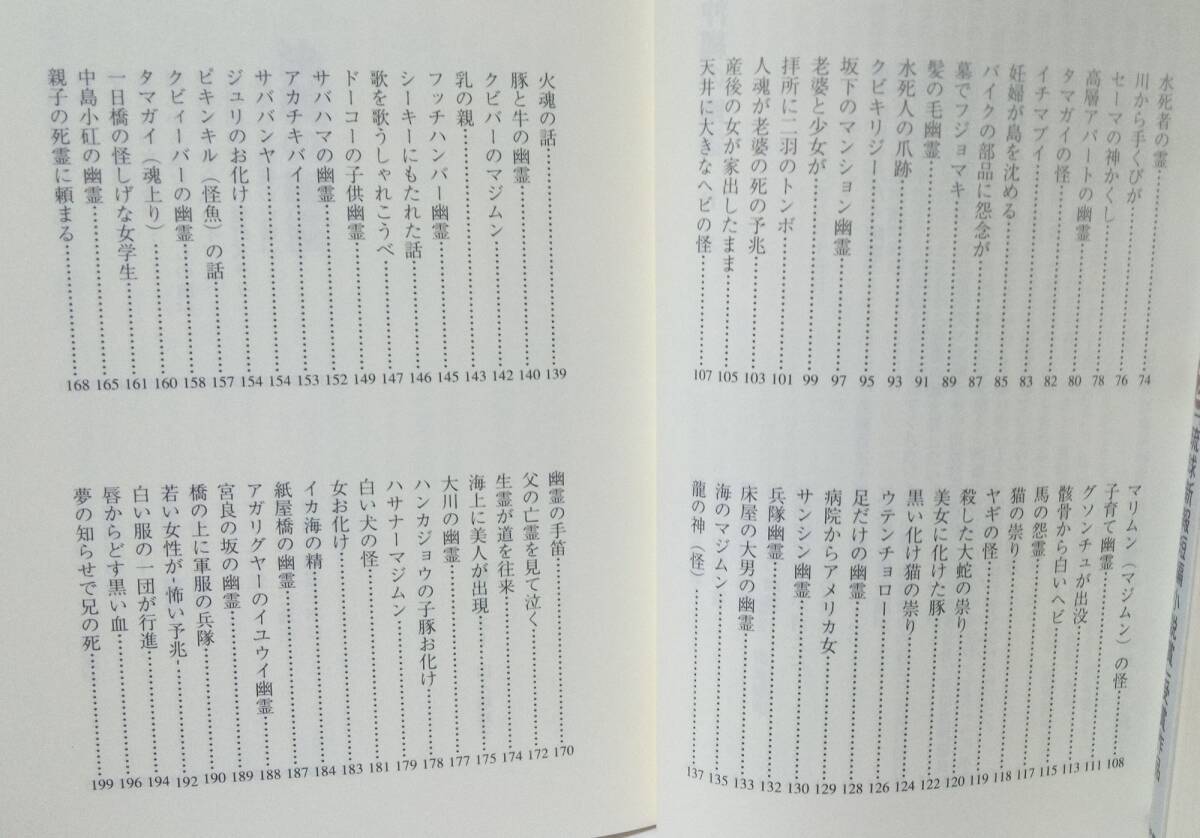 水死者の霊……74
川から手くびが……76
セーマの神かくし……78
高層アパートの幽霊……80
タマガイの怪……82
イチマブイ……83
妊婦が島を沈める……85
バイクの部品に怨念が……87
墓でフジョマキ……89
髪の毛幽霊……91
水死人の爪跡……93
クビキリジー……95
坂下のマンション幽霊……97
老婆と少女が……99
拝所に二羽のトンボ……101
人魂が老婆の死の予兆……103
産後の女が家出したまま……105
天井に大きなヘビの怪……107
マリムン（マジムン）の怪……108
子育て幽霊……111
グソンチュが出没……113
骸骨から白いヘビ……115
馬の怨霊……117
猫の祟り……118
ヤギの怪……119
殺した大蛇の祟り……120
美女に化けた豚……122
黒い化け猫の祟り……124
ウテンチョロー……126
足だけの幽霊……128
病院からアメリカ女……129
サンシン幽霊……130
兵隊幽霊……132
床屋の大男の幽霊……133
海のマジムン……135
龍の神（怪）……137
火魂の話……139
豚と牛の幽霊……140
クビバーのマジムン……142
乳の親……143
フッチハンバー幽霊……145
シーキーにもたれた話……146
歌を歌うしゃれこうべ……147
ドーコーの子供幽霊……149
サバハマの幽霊……152
アカチキバイ……153
サババンヤー……154
ジュリのお化け……154
ピキンキル（怪魚）の話……157
クビィーバーの幽霊……158
タマガイ（魂上り）……160
一日橋の怪しげな女学生……161
中島小矼の幽霊……165
親子の死霊に頼まる……168
幽霊の手笛……170
父の亡霊を見て泣く……172
生霊が道を往来……174
海上に美人が出現……175
大川の幽霊……177
ハンカジョウの子豚お化け……178
ハサナーマジムン……179
白い犬の怪……181
女お化け……183
イカ海の精……184
紙屋橋の幽霊……187
アガリグヤーのイユウイ幽霊……188
宮良の坂の幽霊……189
橋の上に軍服の兵隊……190
若い女性が-怖い予兆-……192
白い服の一団が行進……194
唇からどす黒い血……196
夢の知らせで兄の死……199